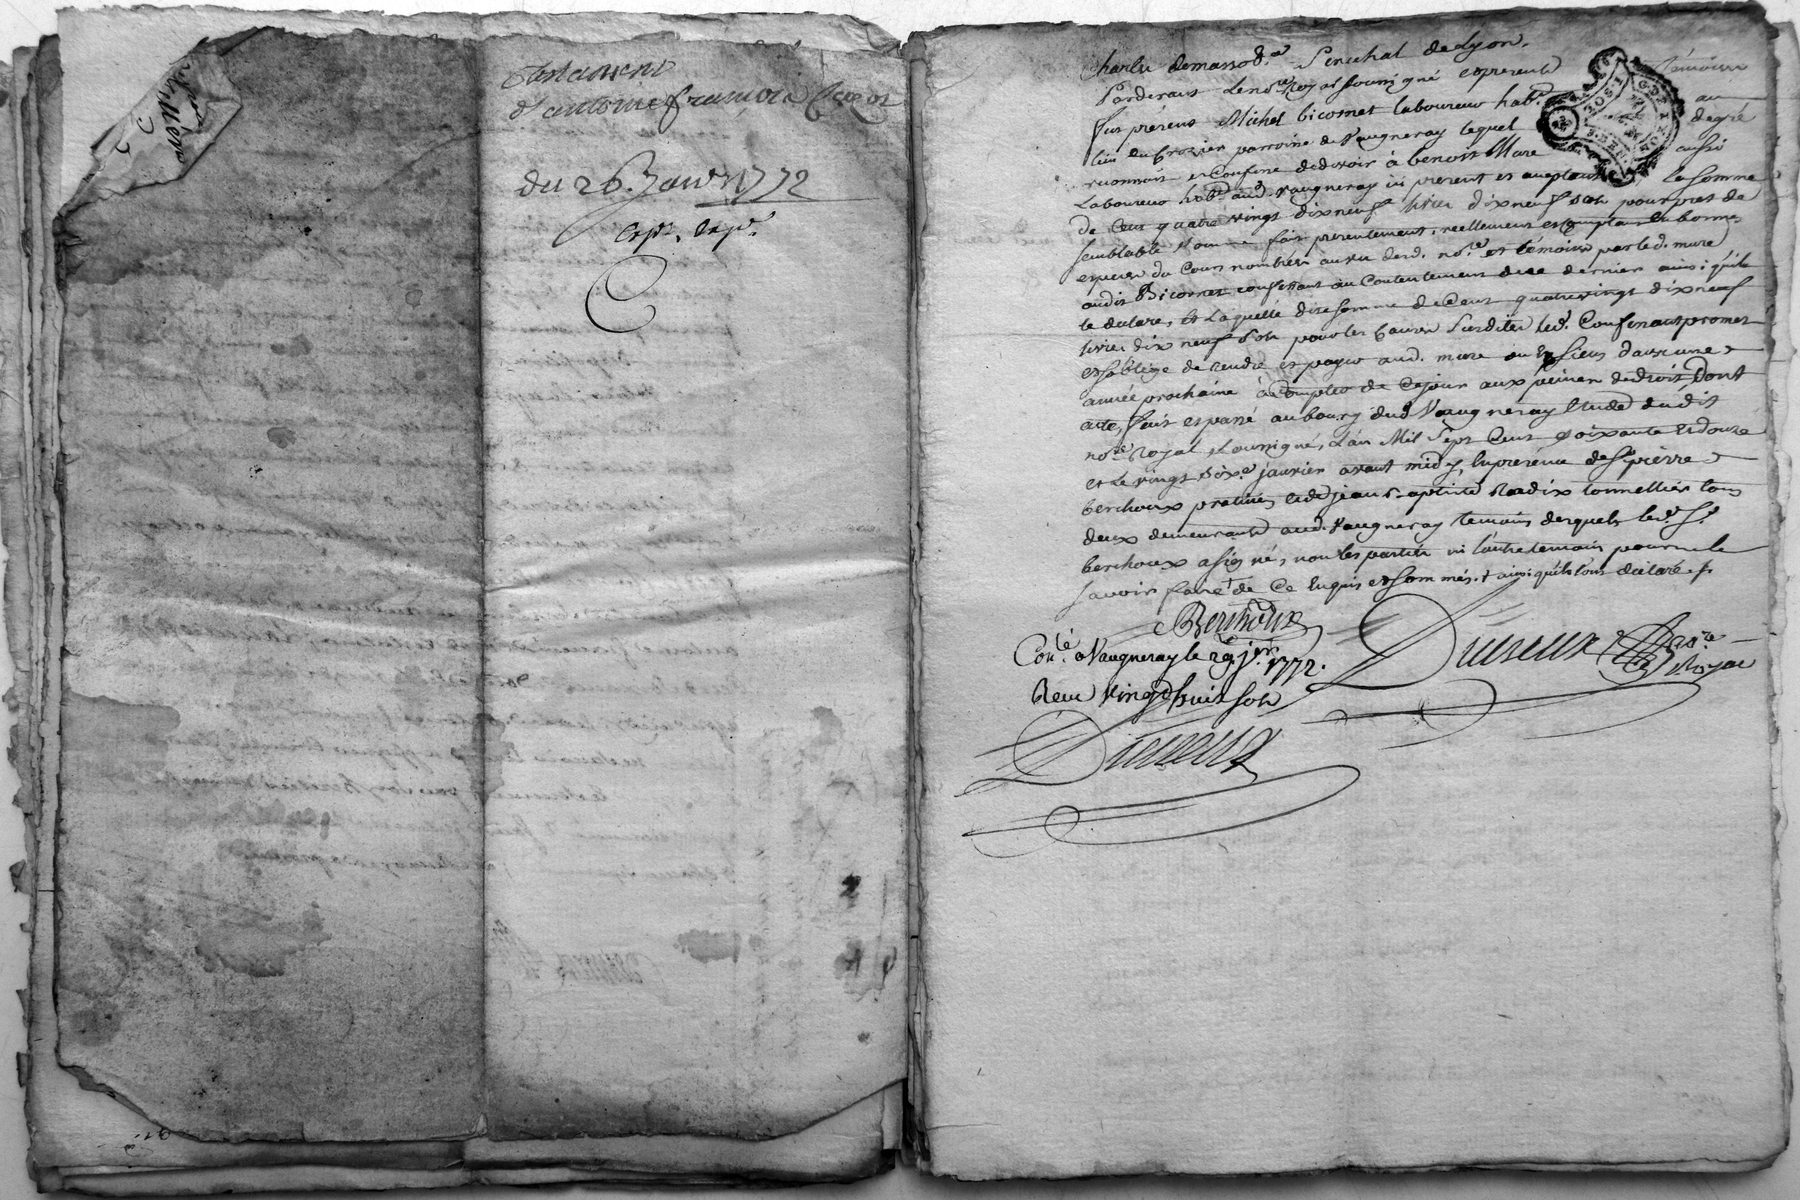 Testament
d'antoine françois
du 26. Janv. 1772
Exp.
Senechal de Lyon.
Pardevant le no.re Royal soussigné et présents
fut présent Michel bicornet laboureur hab.
lieu du Crozier parroisse de Vaugneray lequel
au
de gré
reconnoit et confesse devoir à benoit Mure
aussi
Laboureur hab. aud. Vaugneray ici présent et acceptant la somme
de Cent quatre vingt dixneuf livres dixneuf sols pour prêt de
semblable somme fait présentement, réellement et comptant en bonnes
especes du Cours nombrées au vu desd. no.re et témoins par led. mure
audit Bicornet confessant au Contentement de ce dernier ainsi qu'il
le declare, et laquelle dite somme de Cent quatre vingt dixneuf
livres dix neuf sols pour les Causes susdites led. Confessant promet
et s'oblige de rendre et payer aud. mure ou es siens dans une
année prochaine à compter de Ce jour aux peines de droit, Dont
acte, fait et passé au bourg dud. Vaugneray Etude dudit
no.re Royal soussigné, L'an Mil Sept Cent soixante et douze
et Le vingt six.e janvier avant midy, En présence de S.r pierre
berchoux praticien et de jean baptiste Radix tonnellier tous
deux demeurants aud. Vaugneray temoins desquels led. S.r
berchoux a signé, non les parties ni l'autre temoin pour ne le
savoir faire de Ce Enquis et sommés. + ainsi qu'ils l'ont déclaré. +
Berchoux
Con.lé a Vaugneray le 29 j.er 1772.
Dutreux no.re Royal
Recu vingt huit sols
Dutreux